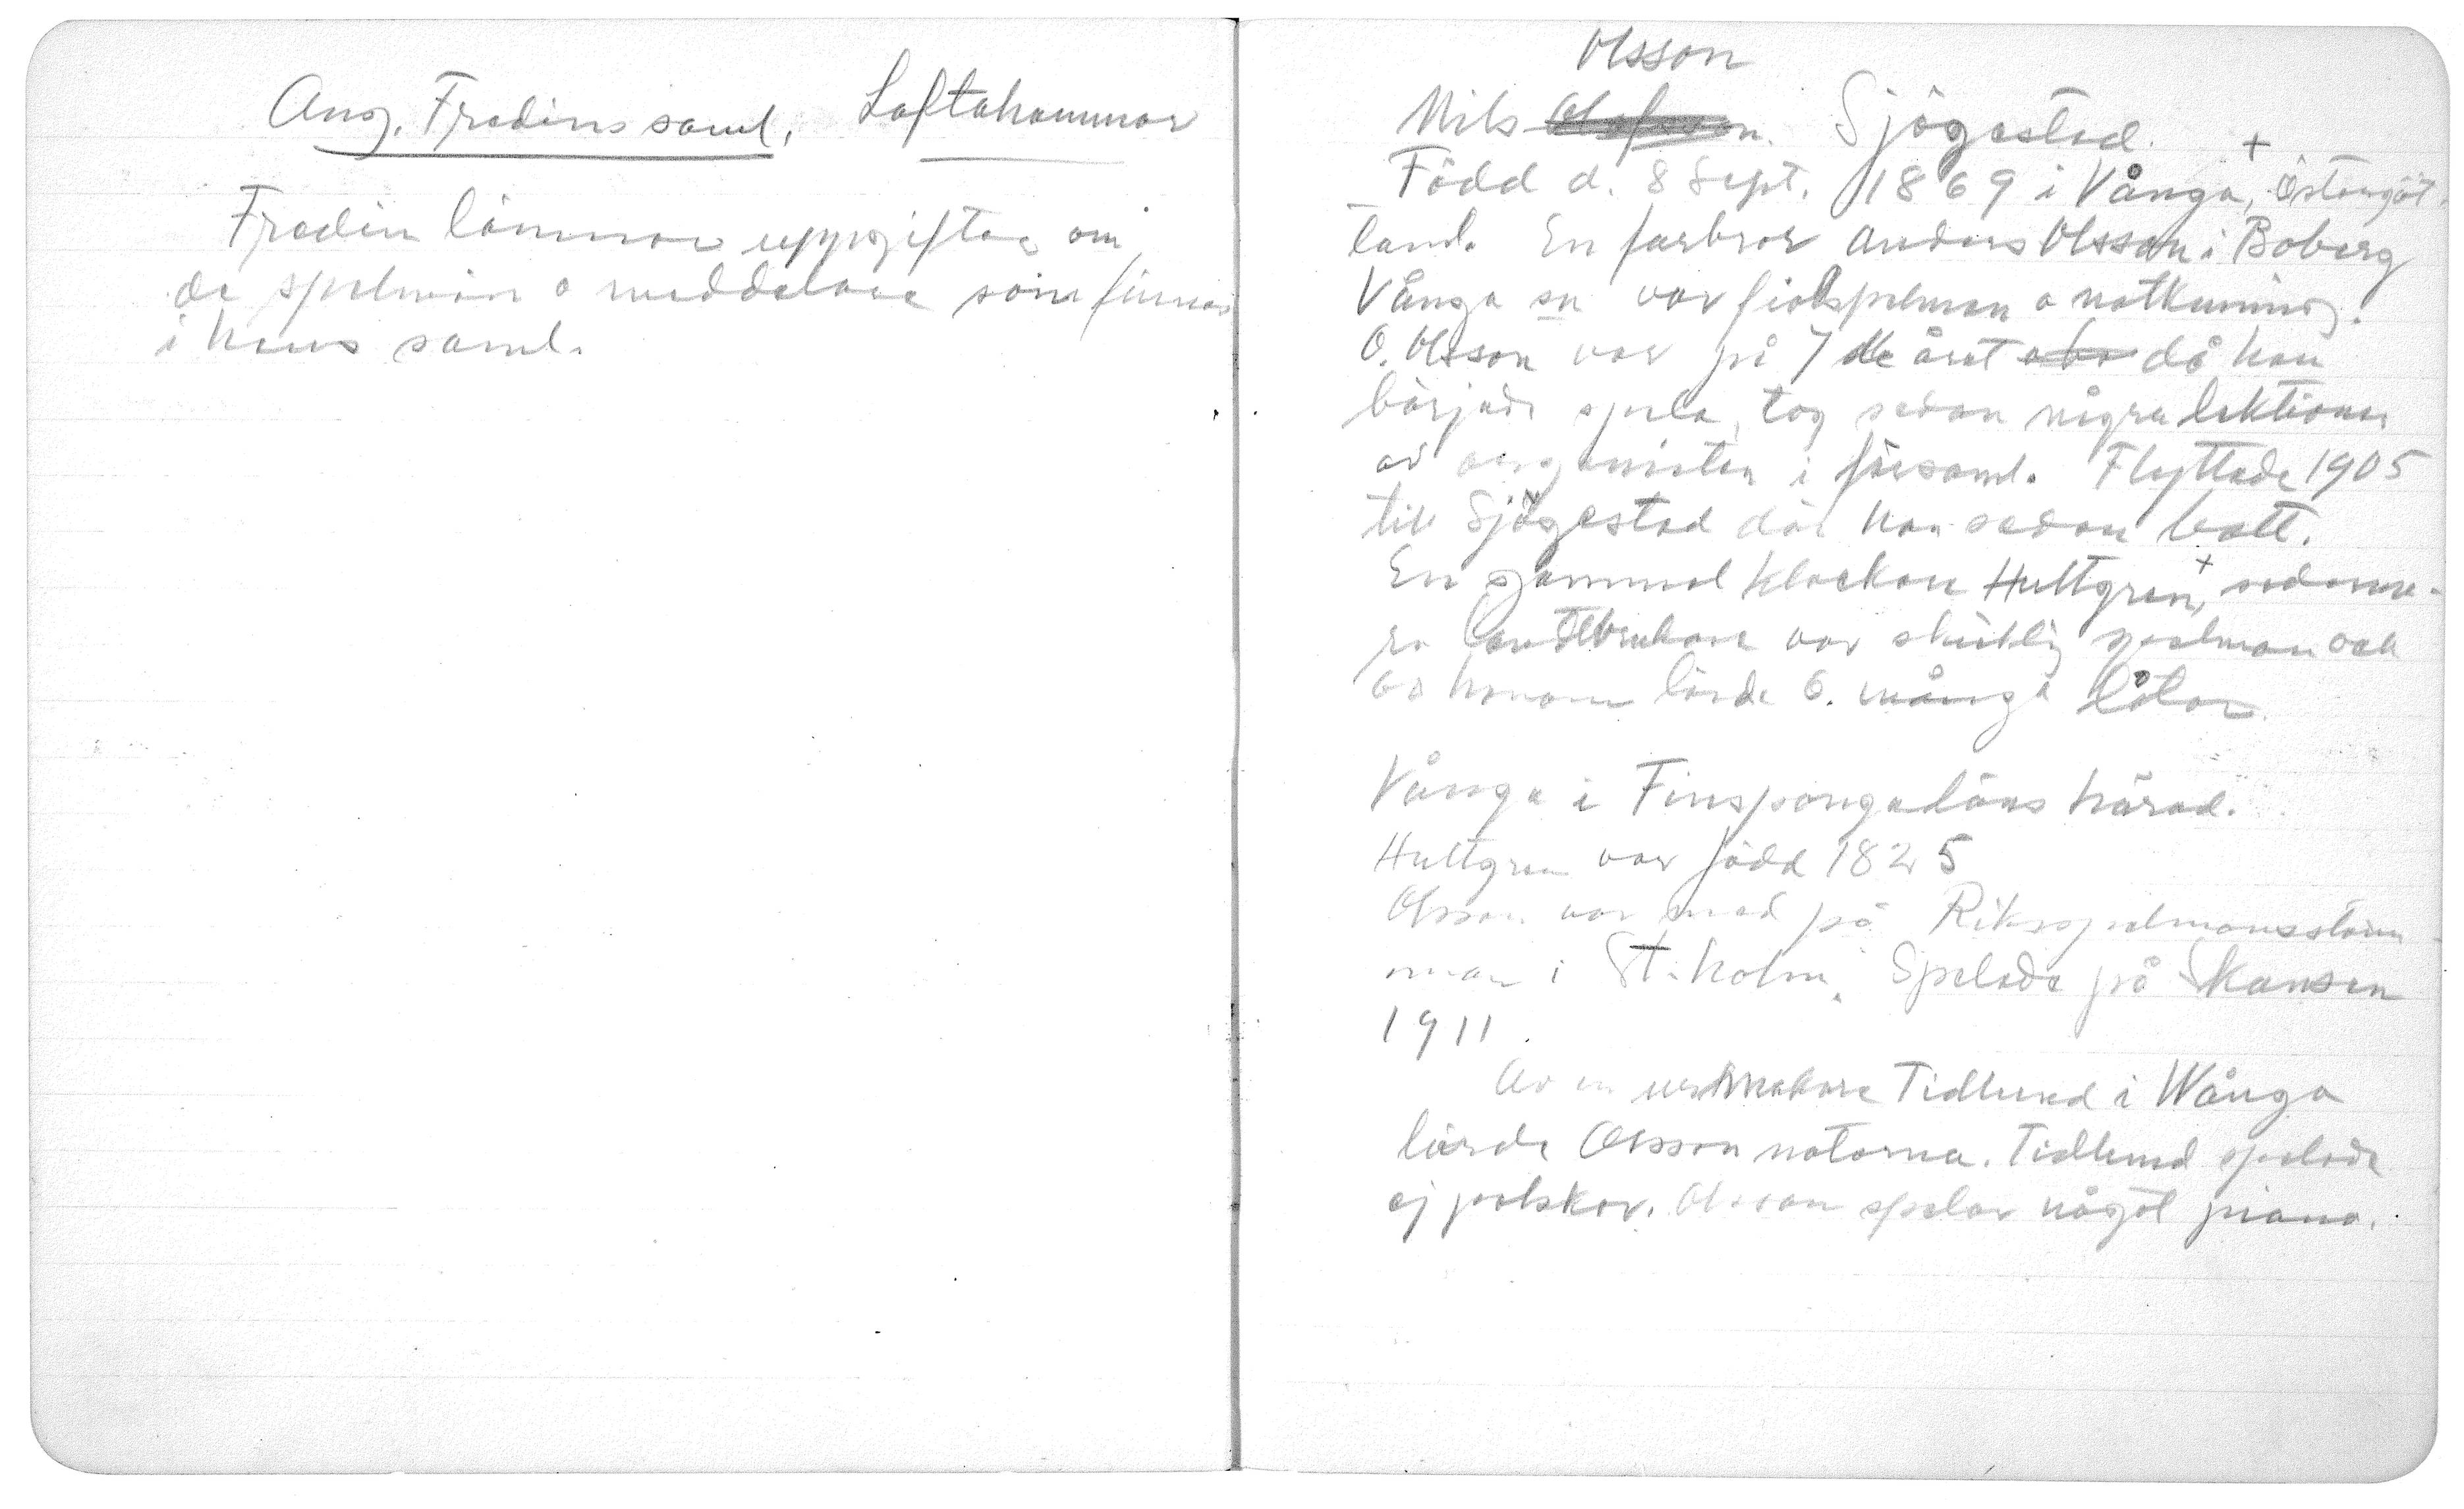 Ang. Fredins saml. Loftahammar
Fredin lämnar uppgifter om
de spelmän o meddelare som finnas
i hans saml.
Olsson
Nils Olofsson. Sjögestad. +
Född d. 8 Sept. 1869 i Vånga, Östergöt
land. En farbror Anders Olsson i Boberg
Vånga sn var fiolspelman o notkunnig.
O. Olsson var på 7de året då han
började spela, tog sedan några lektioner
av organisten i församl. Flyttade 1905
till Sjögestad där han sedan bott.
En gammal klockare Hultgren, + sederme-
ra lantbrukare var skicklig spelman och
av honom lärde O. många låtar.
Vånga i Finspongaläns härad.
Hultgren var född 1825
Olsson var med på Riksspelmansstäm-
man i St.holm. Spelade på Skansen
1911.
Av en urmakare Tidlund i Wånga
lärde Olsson noterna. Tidlund spelade
ej polskor. Olsson spelar något piano.